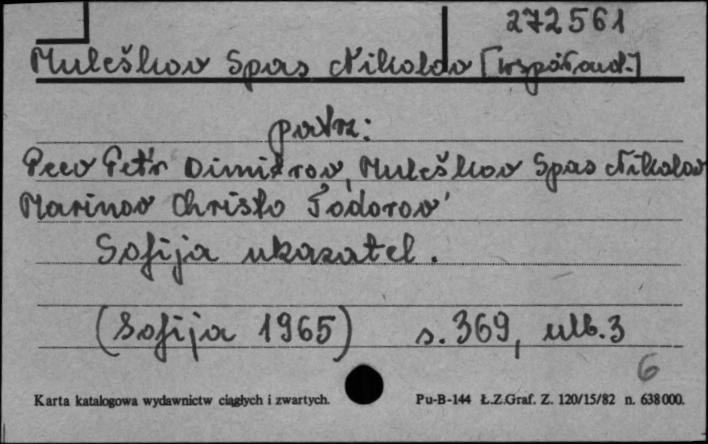 272561
Muleškov Spas Nikolov [współaut.]
patrz:
Peev Petr Dimitrov, Muleškov Spas Nikolov
Marinov Christo Todorov
Sofija ukazatel.
(Sofija 1965) s. 369, ulb. 3
6
Karta katalogowa wydawnictw ciągłych i zwartych. Pu-B-144 Ł.Z.Graf. Z. 120/15/82 n. 638000.